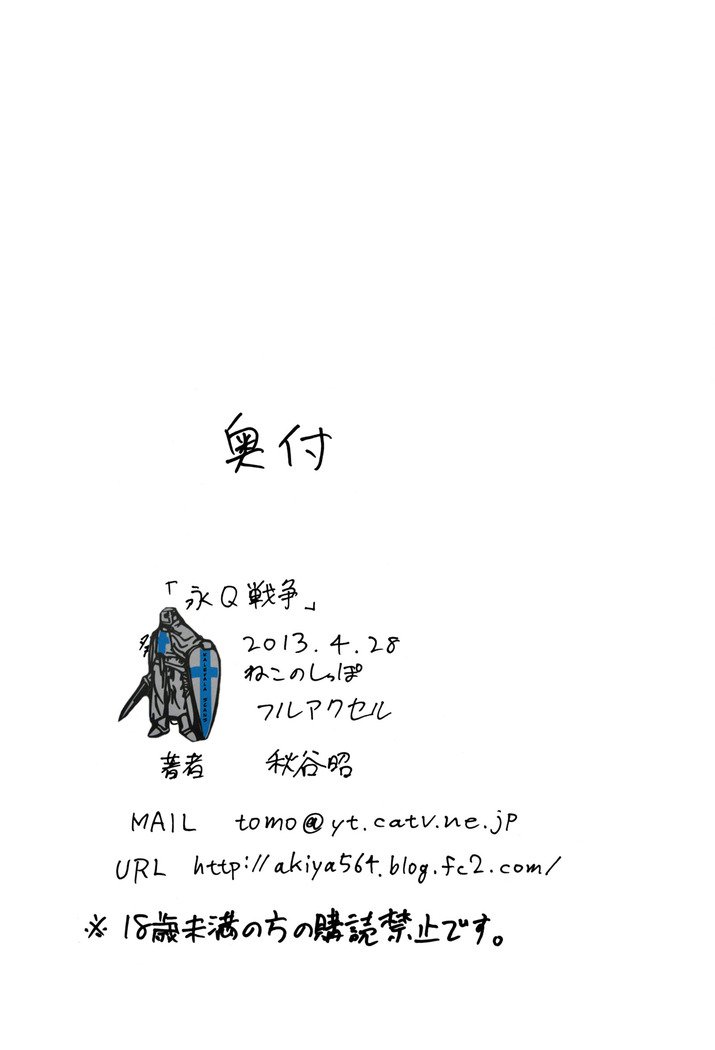 奥付
「永Q戦争」
2013.4.28
ねこのしっぽ
フルアクセル
著者 秋谷昭
MAIL tomo@yt.catv.ne.jp
URL http://akiya564.blog.fc2.com/
※ 18歳未満の方の購読禁止です。